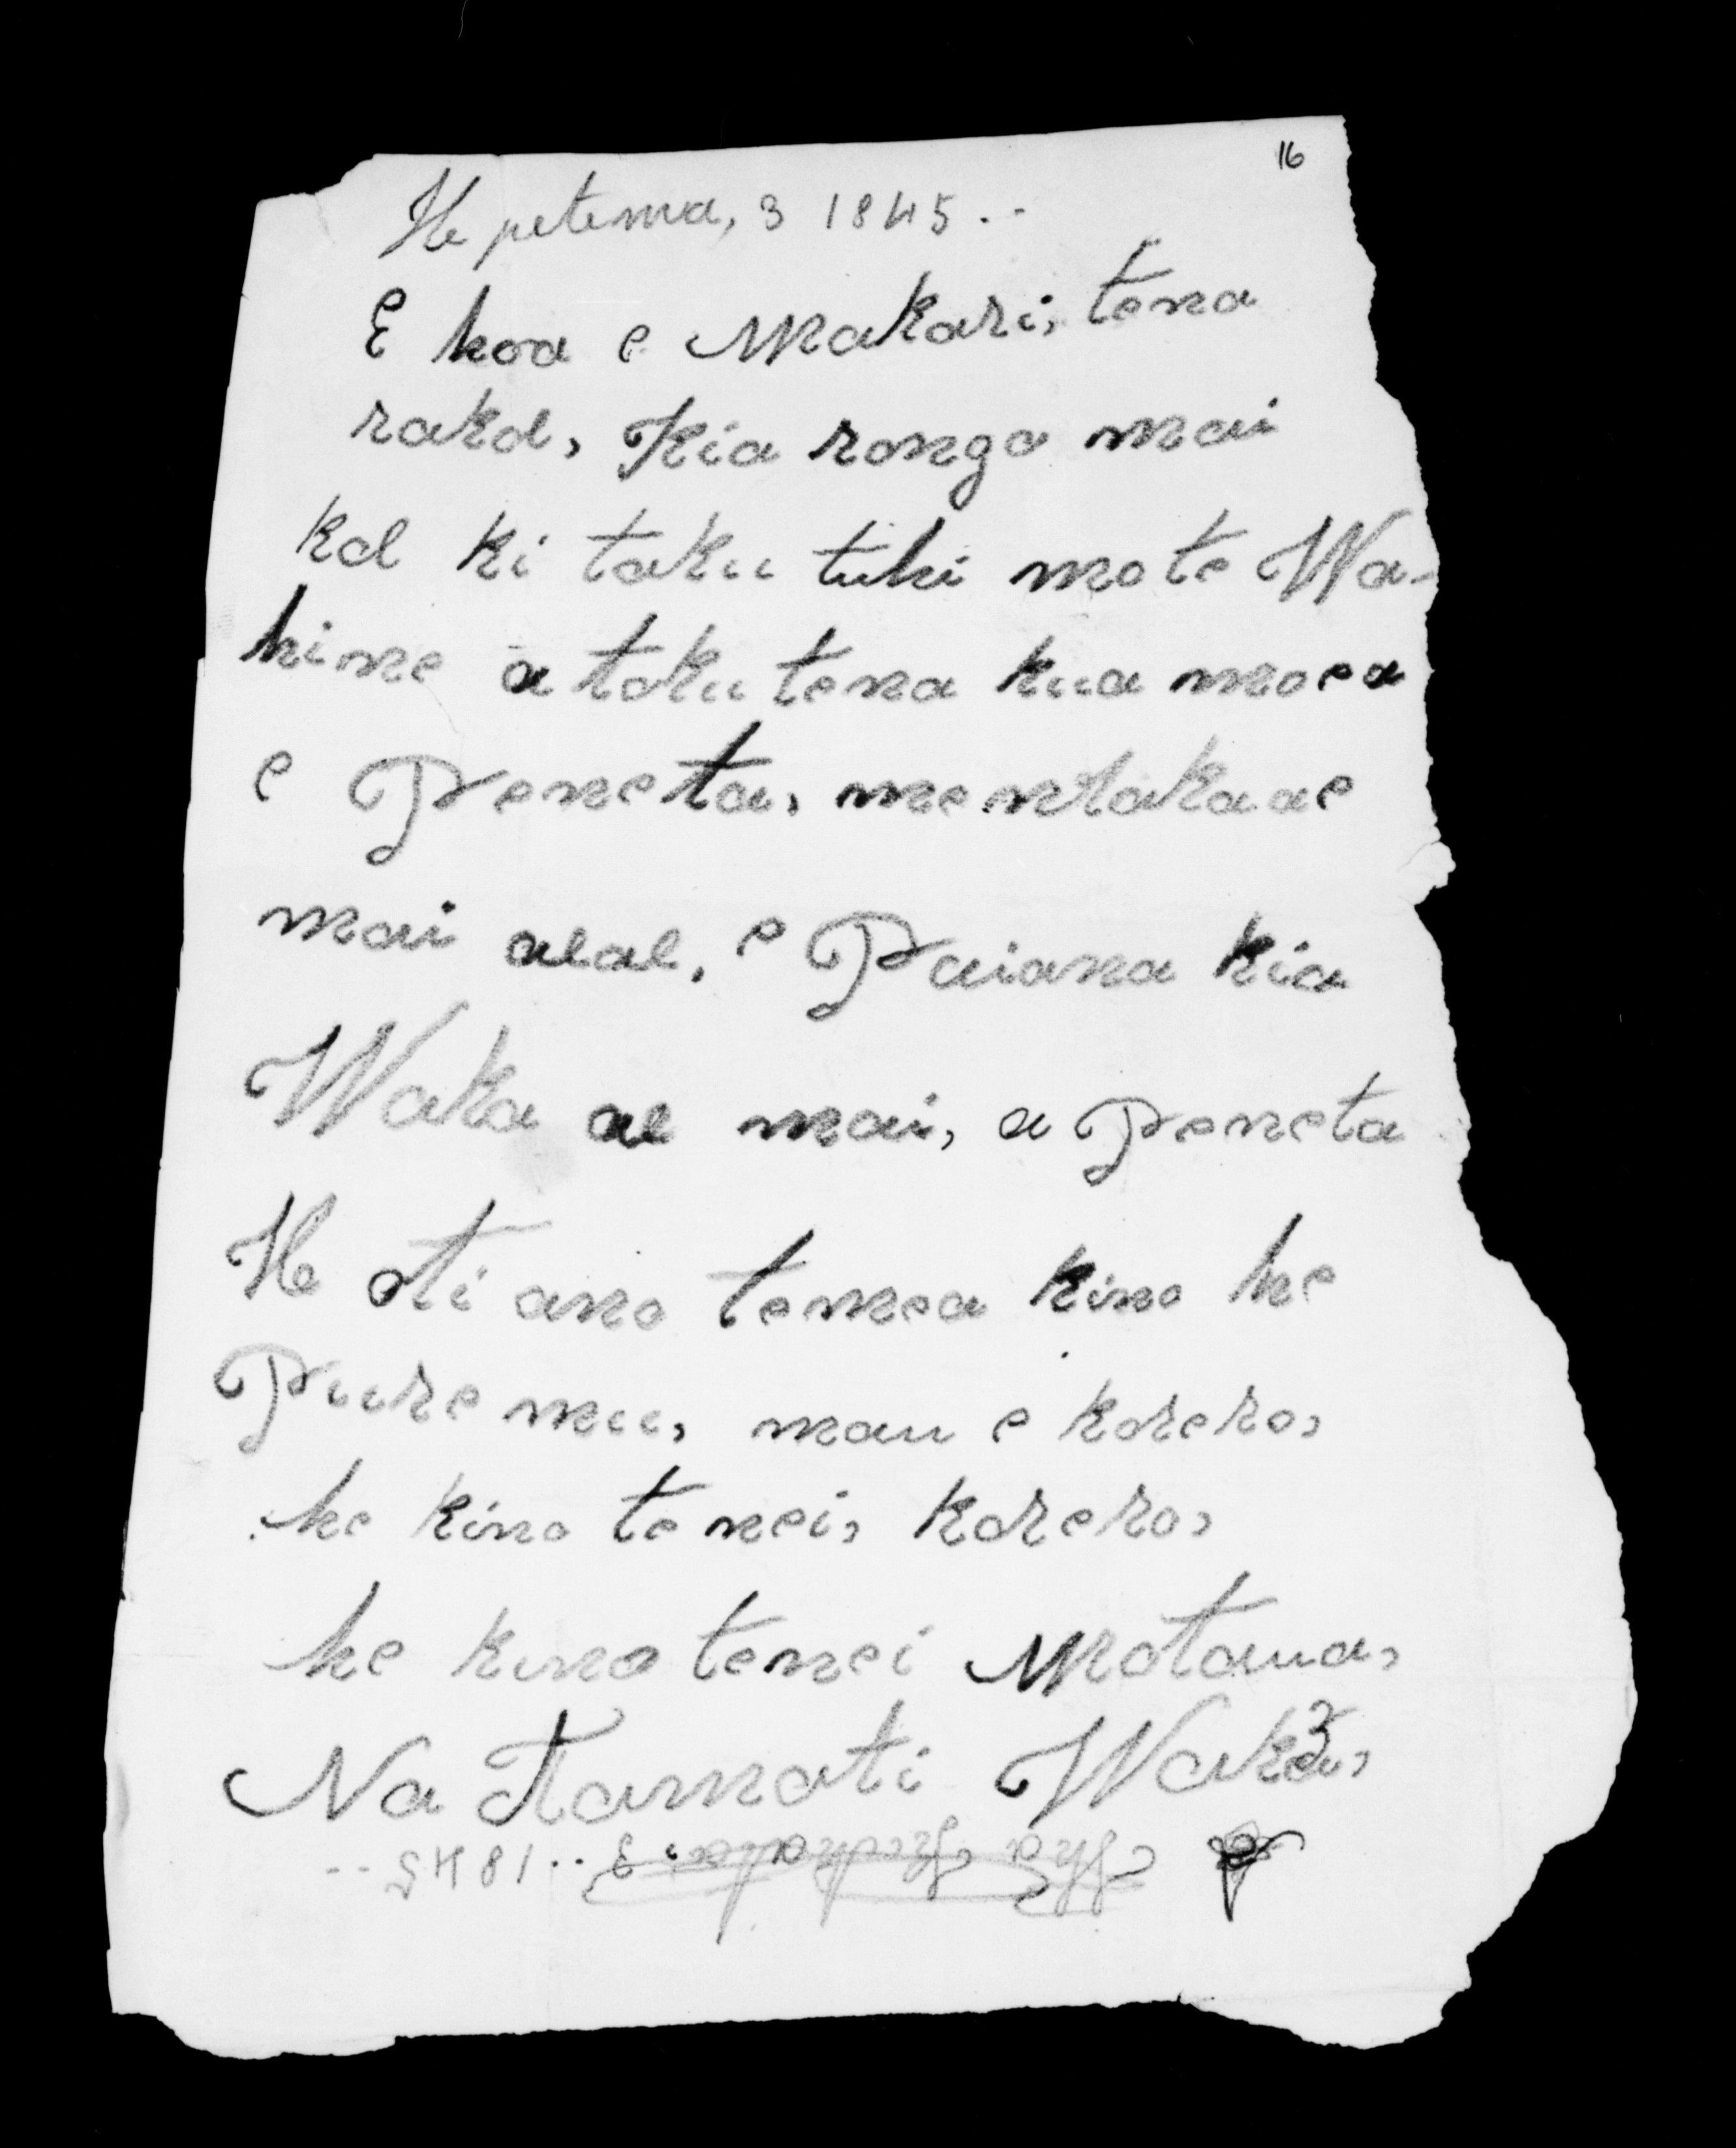 16
He petema, 3 1845..
E hoa e Makari, tena
rakoe, Kia rongo mai
koe ki taku tuhi mo te Wa-
hine a toku tena kua moea
e Peneta, me
mai e Paiana kia
Waka ae mai, a Peneta
He oti ano temea kino he
Puremu, mau e korero,
he kino tenei, korero,
he kino tenei Motaua,
Na Tamati Waka,
3
1845..